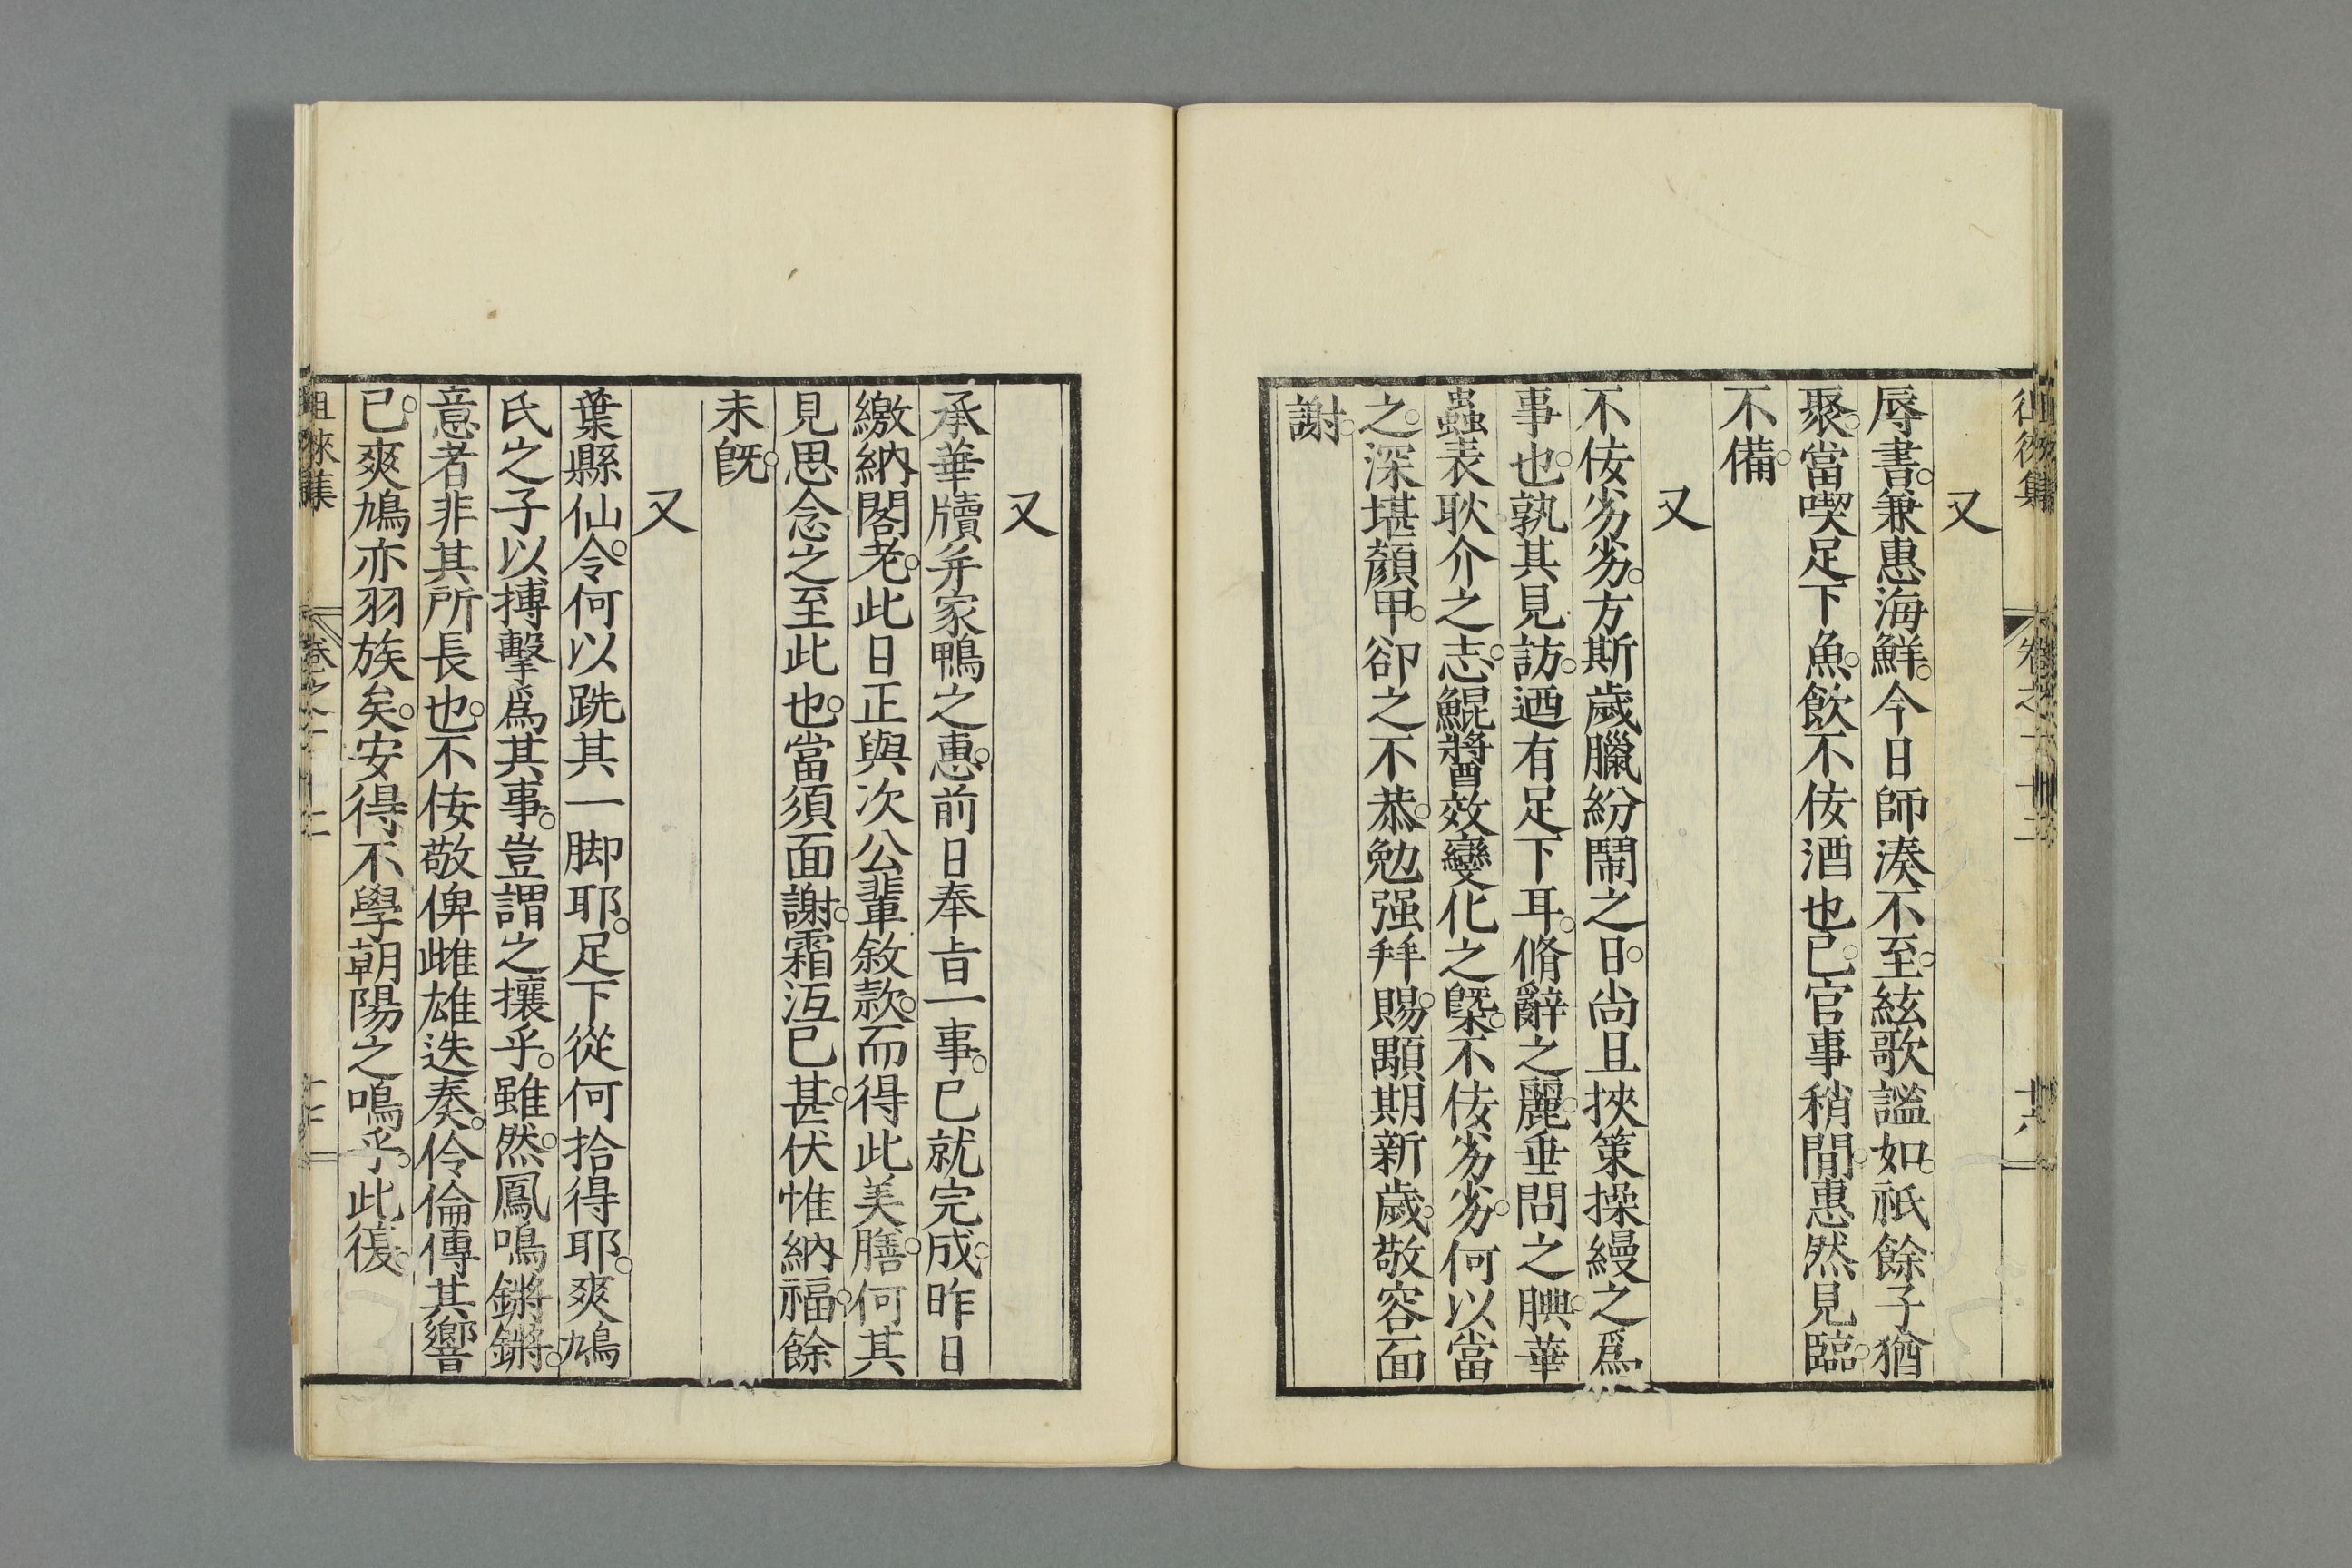 又
辱書。兼惠海鮮。今日師湊不至。絃歌謐如。祇餘子猶
聚。當喫足下魚。飲不佞酒也已。官事稍間。惠然見臨。
不備。
又
不佞劣劣。方斯歲臘紛鬧之日。尚且挾策操縵之爲
事也。孰其見訪。迺有足下耳。脩辭之麗。垂問之腆。華
蟲表耿介之志。鯤鮬效變化之槩。不佞劣劣。何以當
之。深堪顏甲。卻之不恭。勉强拜賜。顒期新歲。敬容面
謝。
又
承華牘并家鴨之惠。前日奉旨一事。已就完成。昨日
繳納閣老。此日正與次公輩敘款。而得此美膳。何其
見思念之至此也。當須面謝。霜沍已甚。伏惟納福。餘
未旣。
又
葉縣仙令。何以跣其一脚耶。足下從何拾得耶。爽鳩
氏之子以搏擊爲其事。豈謂之攘乎。雖然。鳳鳴鏘鏘。
意者非其所長也。不佞敬俾雌雄迭奏。伶倫傳其響
已。爽鳩亦羽族矣。安得不學朝陽之鳴乎。此復。
徂徠集
卷之